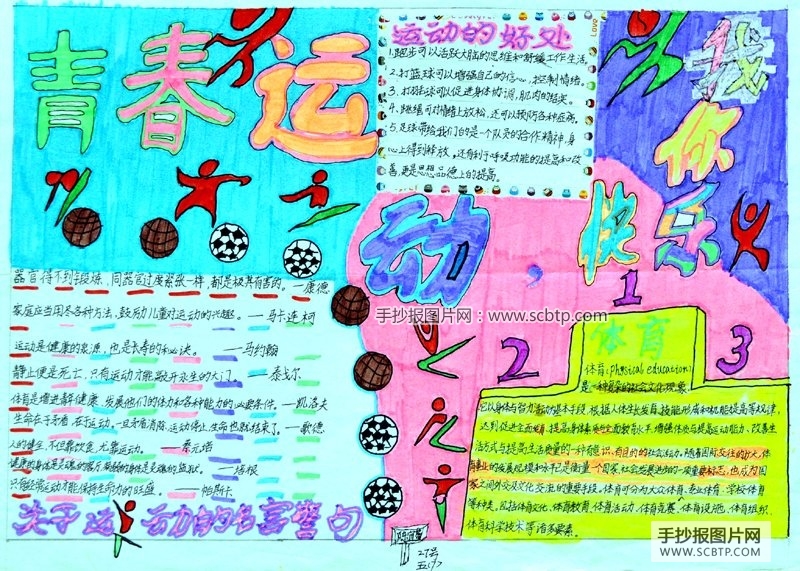 青春运
动,快乐
你
我
运动的好处
1.跑步可以活跃大脑的思维和舒缓工作生活。
2.打篮球可以增强自己的信心,控制情绪。
3.打羽毛球可以促进身体协调,肌肉的结实。
4.跳绳可对情绪上放松,还可以预防各种症病。
5.足球带给我们的是一个队员的合作精神,身
心上得到释放。还有利于呼吸功能的提高和改
善,更是思想品德上的提高。
器官得不到锻炼,同器官过度紧张一样,都是极其有害的。—康德
家庭应当用尽各种方法,鼓励儿童对运动的兴趣。——马卡连柯
运动是健康的泉源,也是长寿的秘诀。——马约翰
静止便是死亡,只有运动才能敲开永生的大门。——泰戈尔
体育是增进静健康、发展他们的体力和各种能力的必要条件。—凯洛夫
生命在于矛盾,在于运动,一旦矛盾消除,运动停止,生命也就结束了。—歌德
人的健全,不但靠饮食,尤靠运动。——蔡元培
健康的身体是灵魂的客厅,病弱的身体是灵魂的监狱。——培根
只有经常运动才能保持生命力的旺盛。——帕斯卡
关于运动的名言警句
手抄报图片网:www.scbtp.com
1
2
3
体育
体育(physical education)
是一种复杂的社会文化现象
它以身体与智力活动为基本手段,根据人体生长发育、技能形成和机能提高等规律,
活方式与提高生活质量的一种有意识、有目的的社会活动。随着国际交往的扩大,体
育事业的发展规模和水平已是衡量一个国家、社会发展进步的一项重要标志,也成为国
家之间外交及文化交流的重要手段。体育可分为大众体育、专业体育、学校体育
等种类。包括体育文化、体育教育、体育活动、体育竞赛、体育设施、体育组织、
体育科学技术等诸多要素。
27号
手抄报图片网
WWW.SCBTP.COM